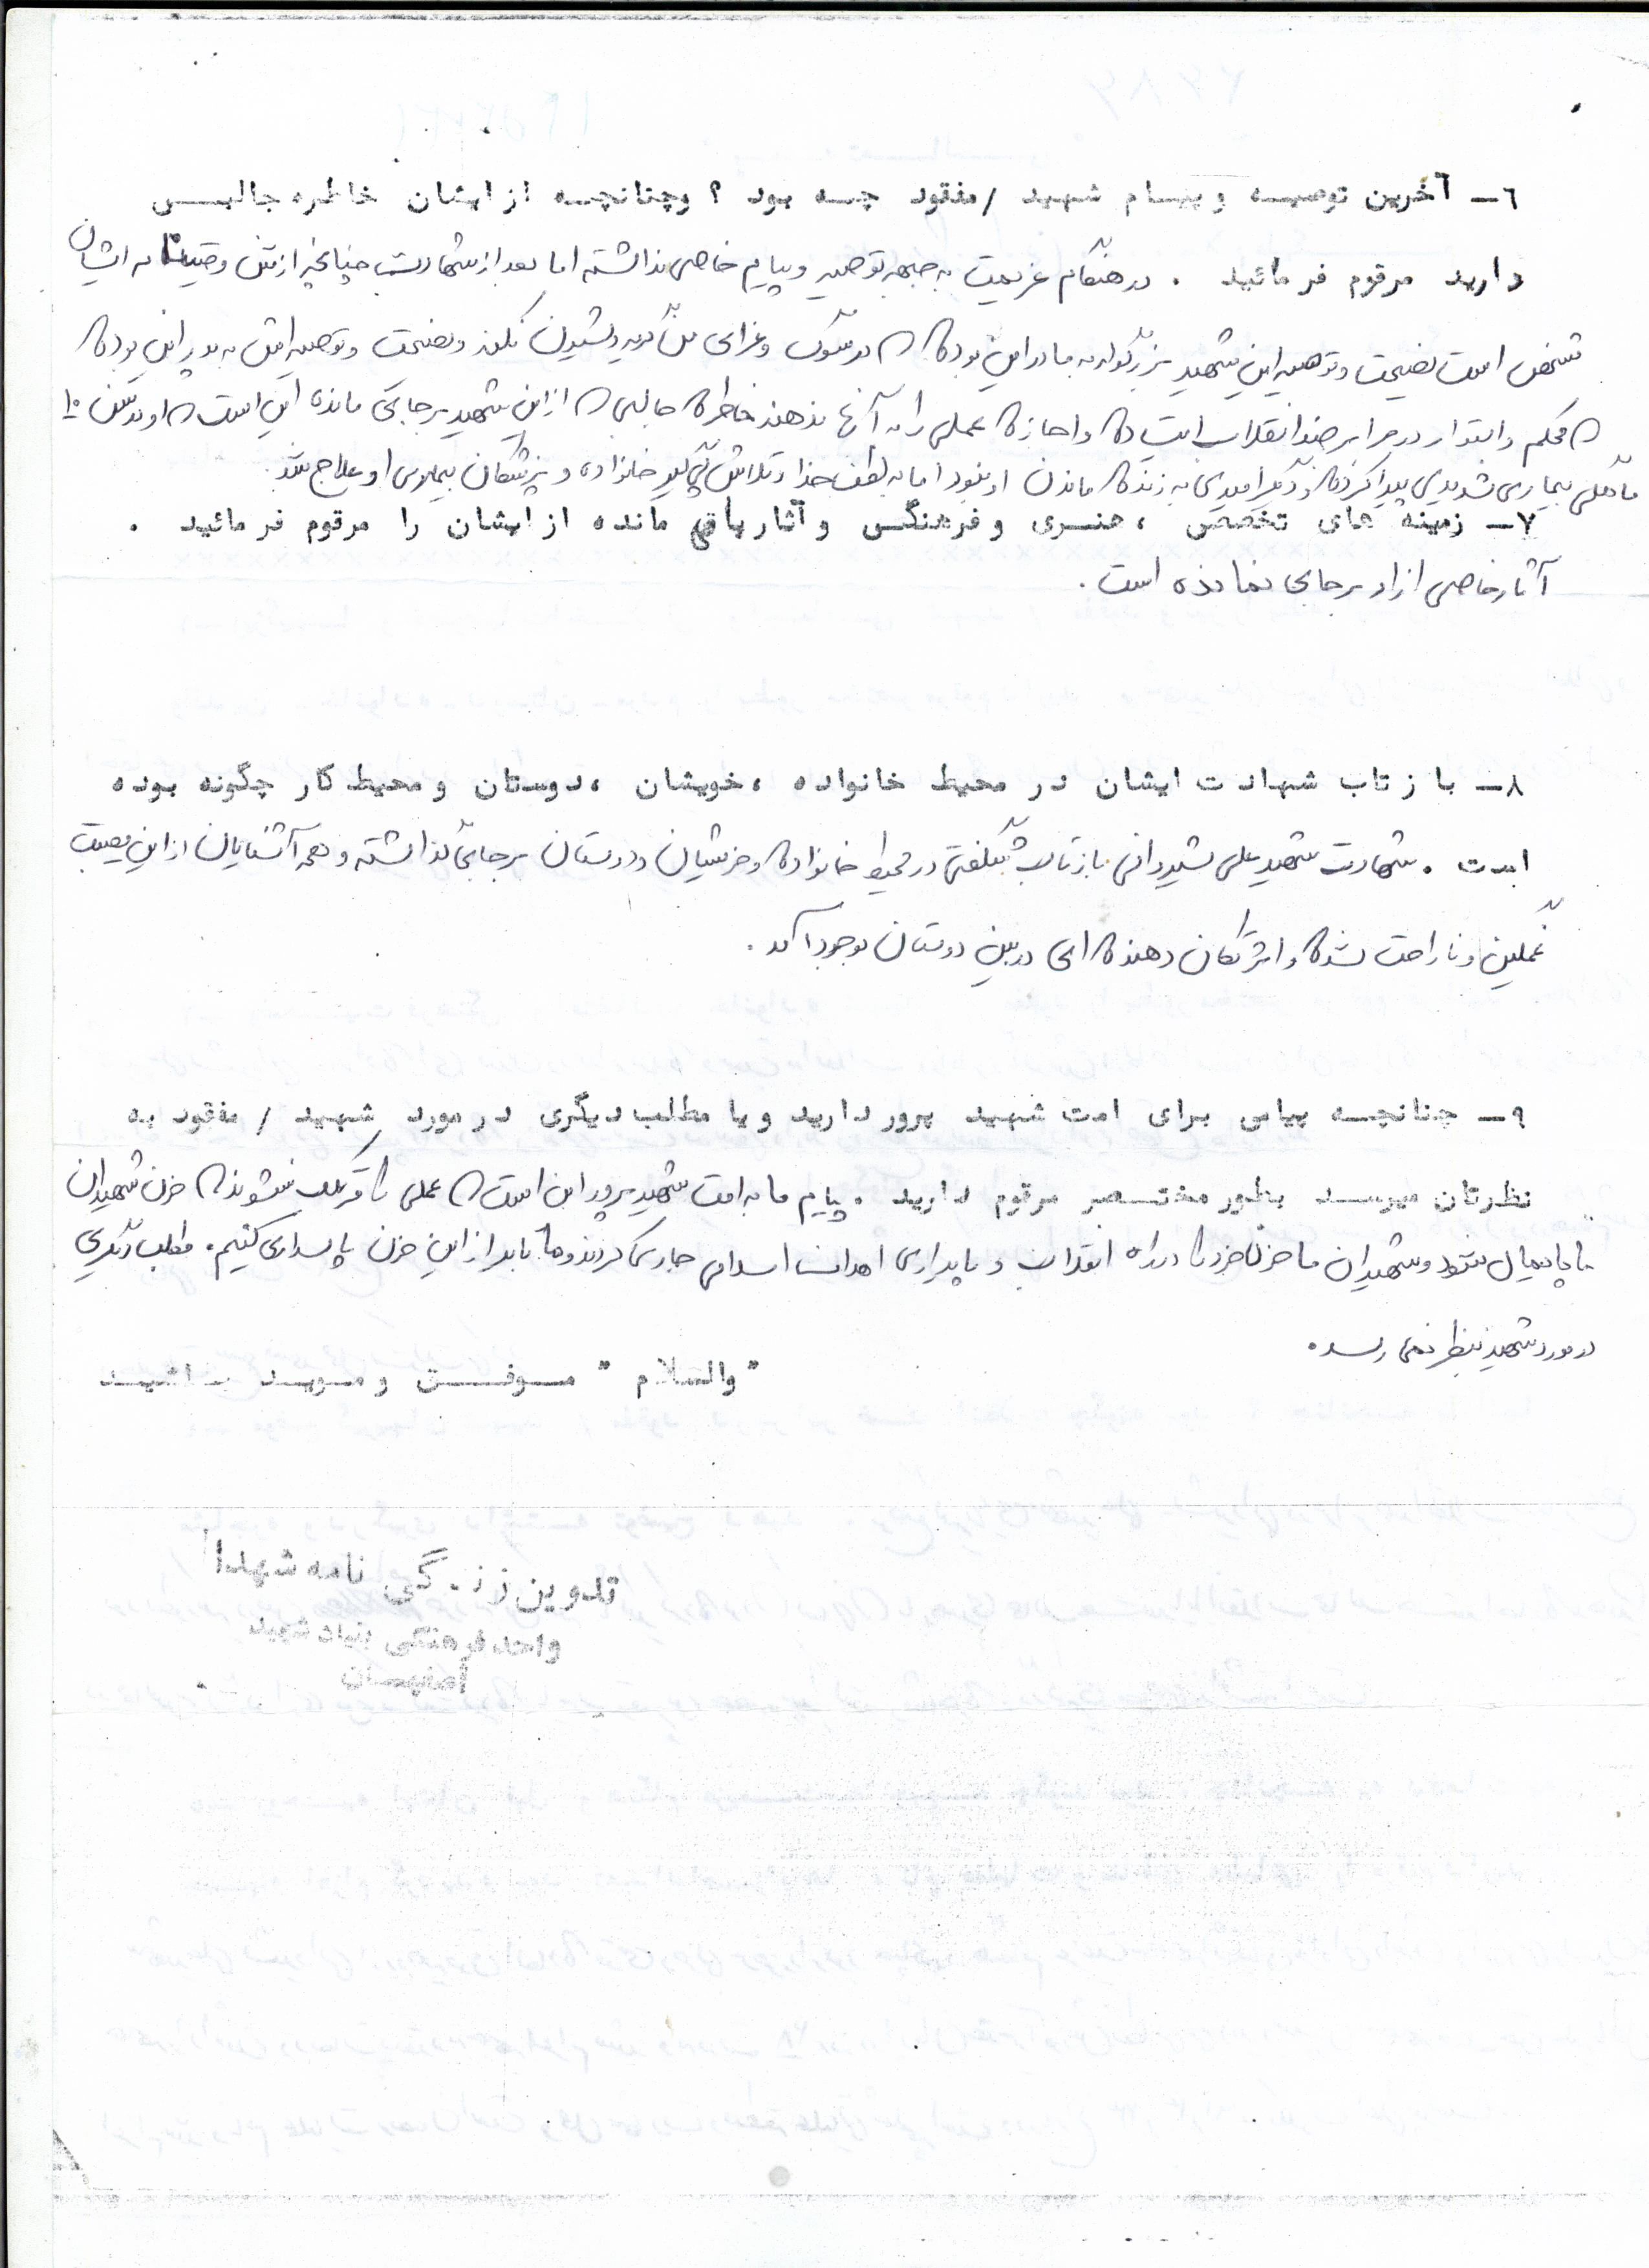 ٦ــ آخرین توصیـه و پیـام شهید /مفقود چـه بود ؟ وچنانچـه از ایشان خاطره جالبـی
دارید مرقوم فرمائید . در هنگام عزیمت به جبهه توصیه و پیام خاصی نداشته اما بعد از شهادتش چنانچه از متن وصیتنامه ایشان
مشخص است نصیحت و توصیه این شهید بزرگوار به مادر این بوده که در سوگ و عزای من گریه و شیون نکند و نصیحت و توصیه اش به پدر این بوده
که محکم و استوار در برابر ضد انقلاب ایستاده و اجازه عملی را به آنها ندهند خاطره جالبی که از این شهید برجای مانده این است که او در سن ۱۰
ماهگی بیماری شدیدی پیدا کرده و دیگر امیدی به زنده ماندن او نبود اما به لطف خدا و تلاش پی گیر خانواده و پزشکان بیماری او علاج شد.
۷ــ زمینه های تخصصی ، هنـری و فرهنگـی و آثار باقی مانده از ایشان را مرقوم فرمائید .
آثار خاصی از او برجای نمانده است .
۸ــ باز تاب شهادت ایشان در محیط خانواده ، خویشان ، دوستان و محیط کار چگونه بوده
است . شهادت شهید علی شیروانی بازتاب شگفتی در محیط خانواده و خویشان و دوستان برجای گذاشته و همه آشنایان از این مصیبت
غمگین و ناراحت شده و اثر تکان دهنده ای در بین دوستان بوجود آمد .
۹ــ چنانچـه پیامی برای امت شهید پرور دارید و یا مطلب دیگری در مورد شهید / مفقود به
نظرتان میرسـد بطور مختـصر مرقوم دارید . پیام ما به امت شهید پرور این است که عملی را مرتکب نشوند که خون شهیدان
ما پایمال شود و شهیدان ما خون خود را در راه انقلاب و پایداری اهداف اسلامی جاری کردند و ما باید از این خون پاسداری کنیم . مطلب دیگری
در مورد شهید بنظر نمی رسد .
" والسلام " مـوفـق و مـویـد بـاشیـد
تدوین زندگی نامه شهدا
واحد فرهنگی بنیاد شهید
اصفهـان